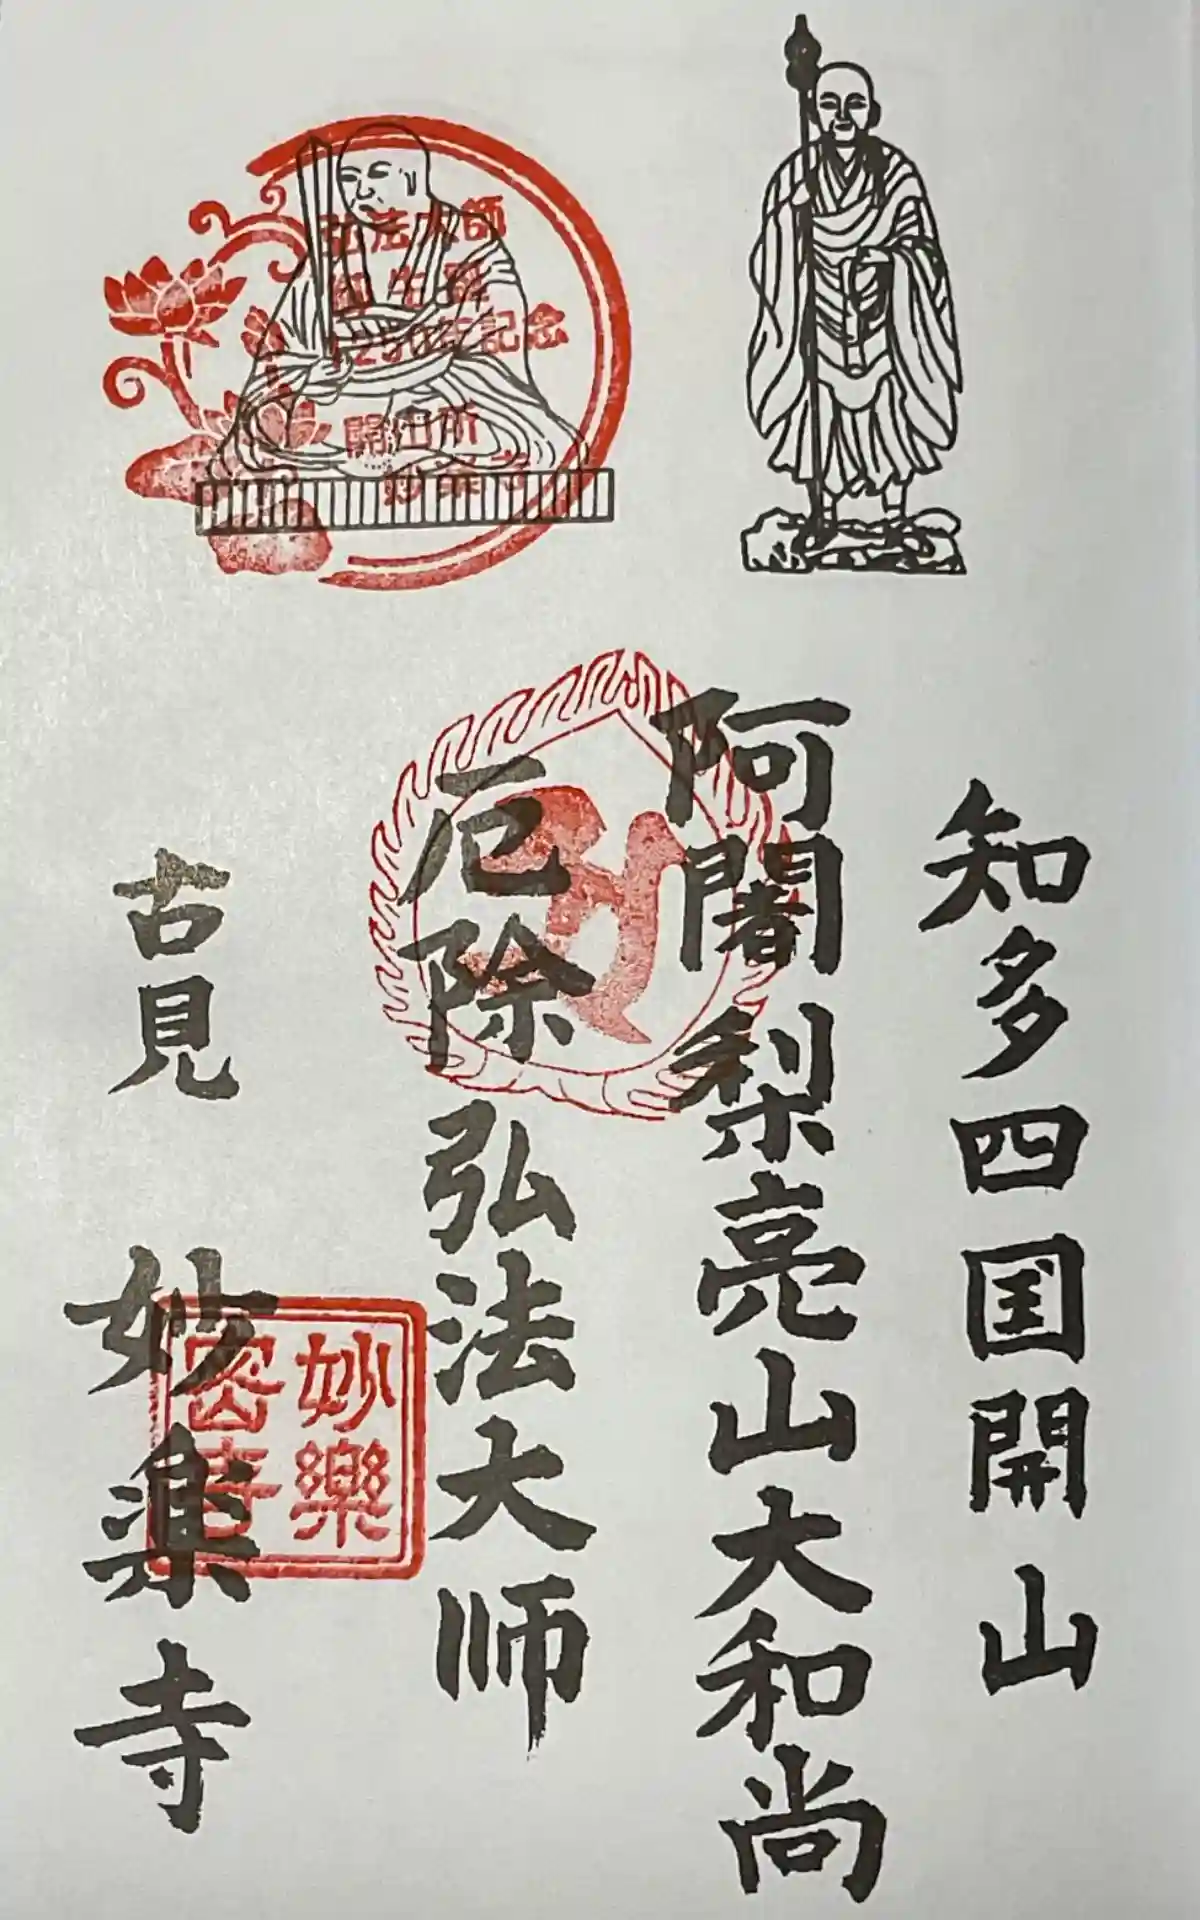 知多四国開山
阿闍梨亮山大和尚
厄除 弘法大师
古見 妙楽寺
弘法大師
御生誕
1250年記念
開山所
妙楽寺
妙樂
密寺